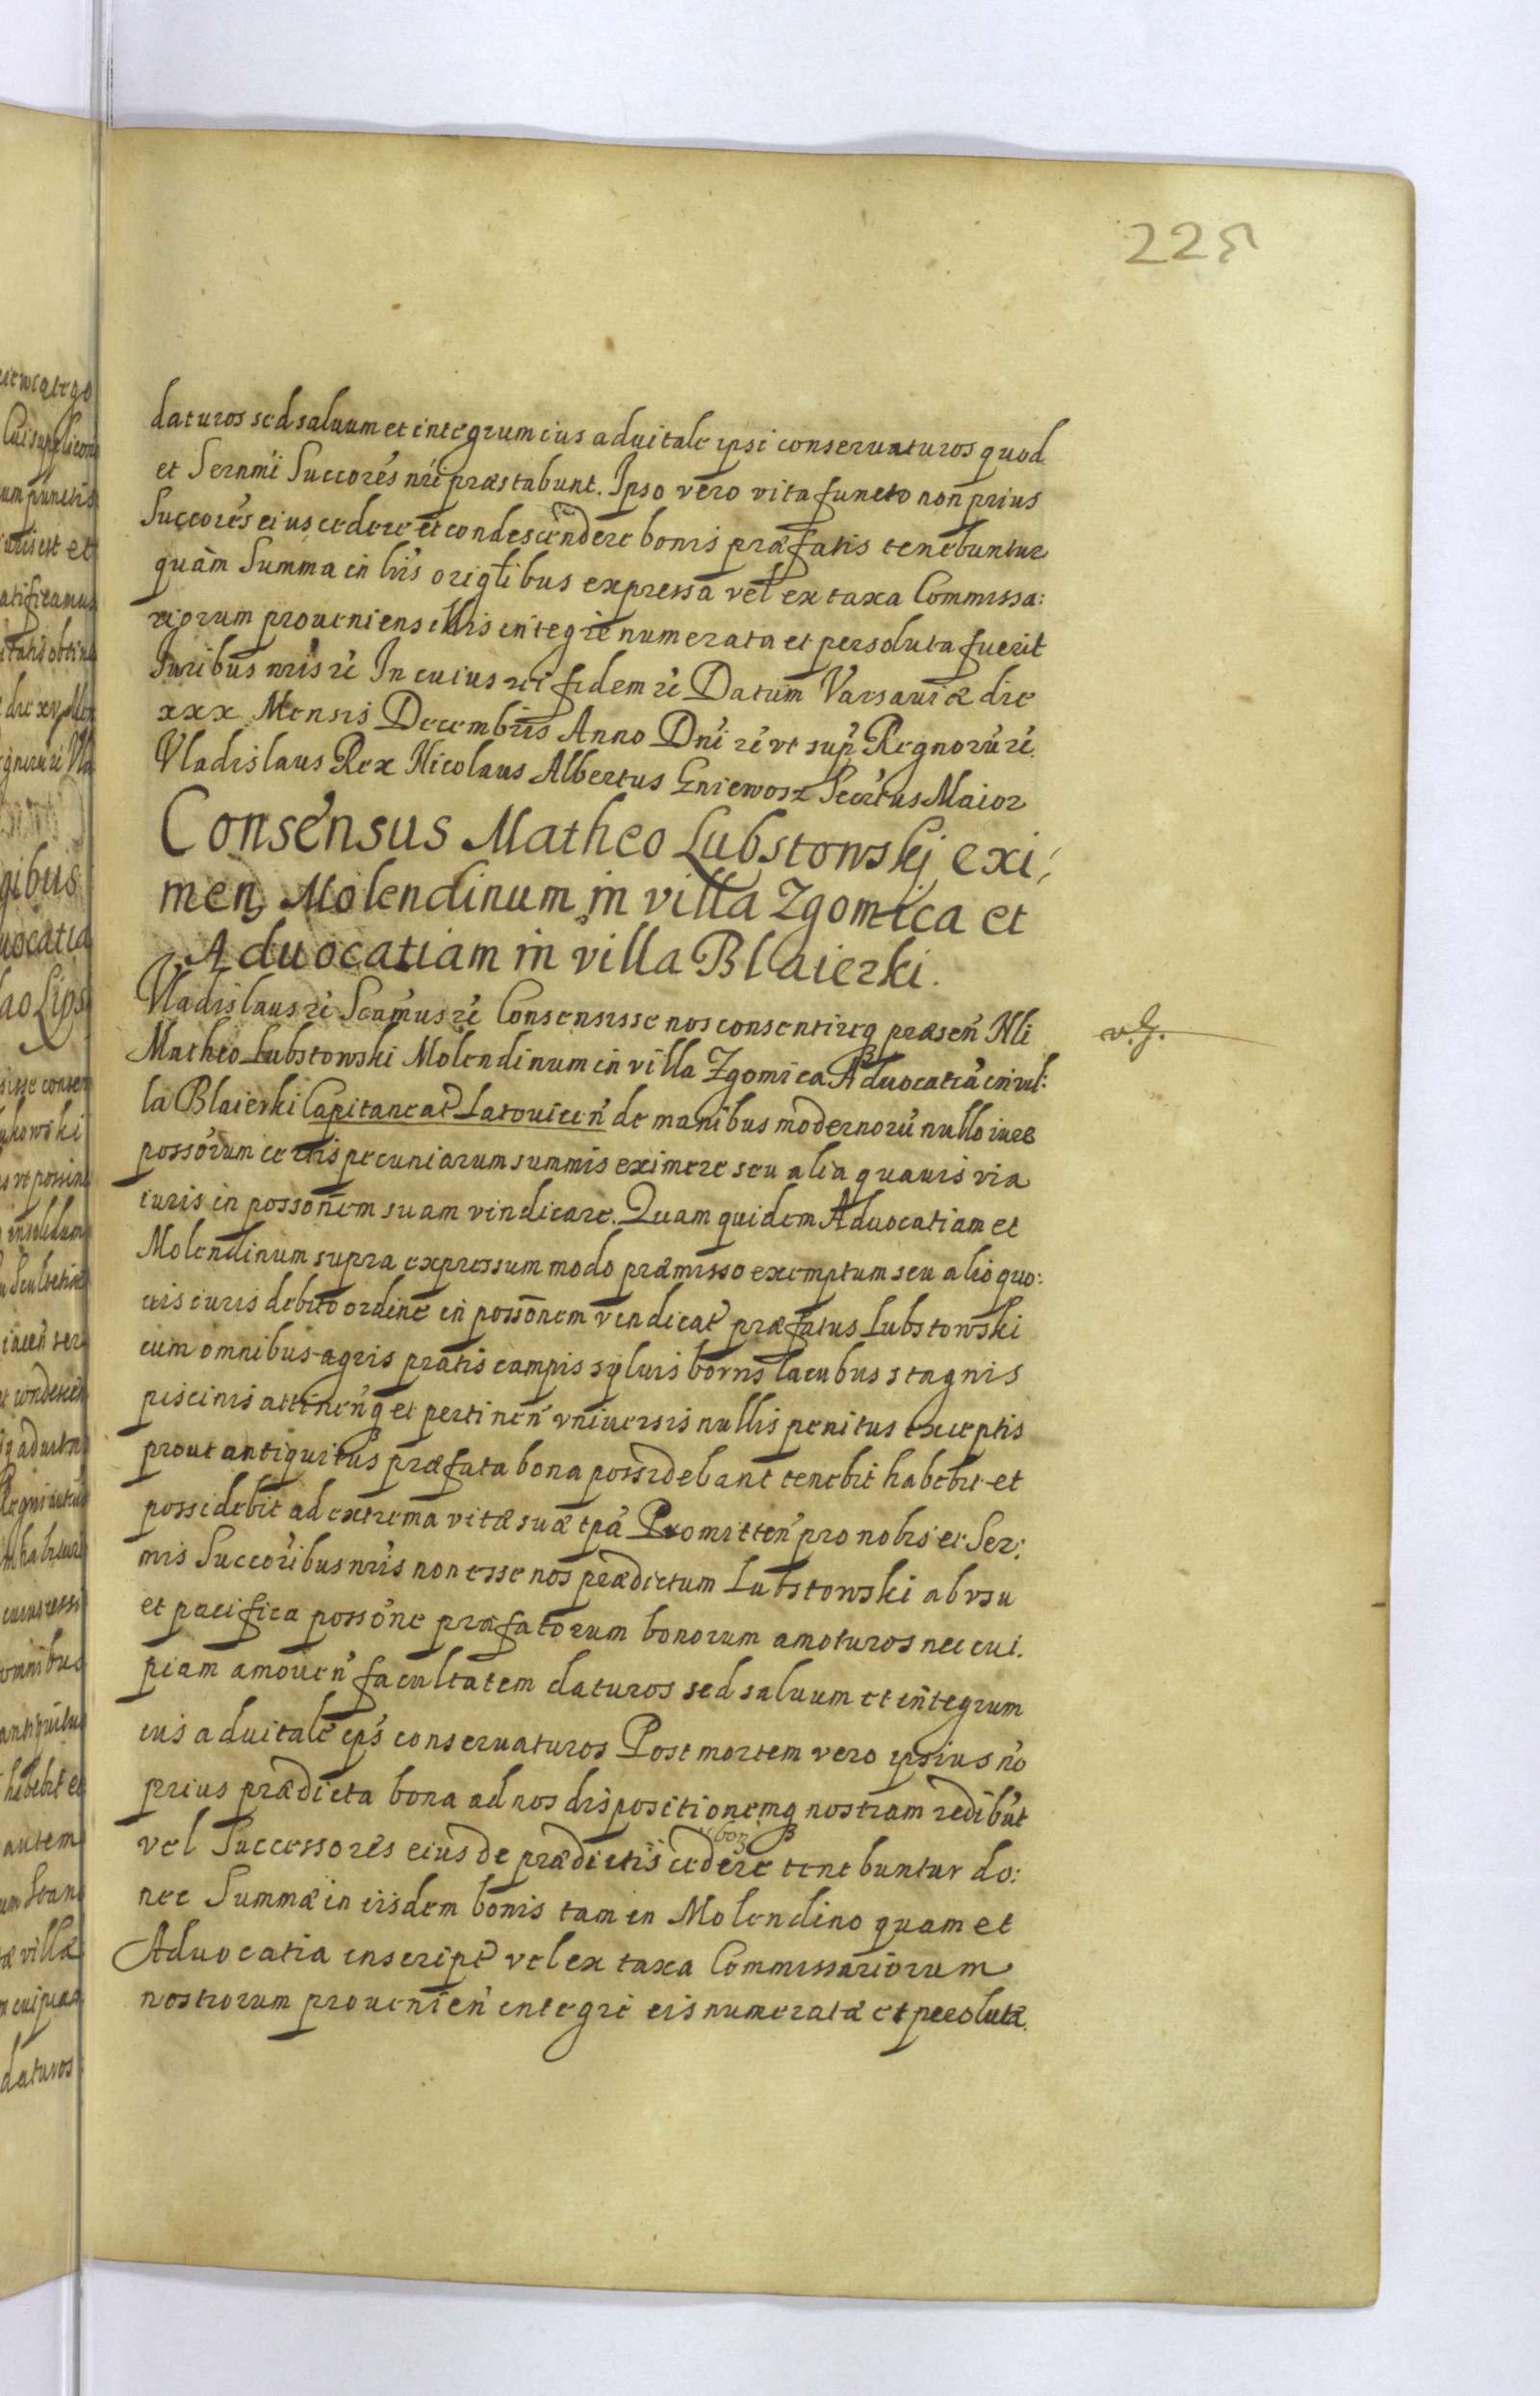 225
daturos sed saluum et integrum ius aduitale ipsi conseruaturos quod
et Sernmi Succorés nri præstabunt. Ipso vero vita functo non prius
Succorés eius cedere et condescendere bonis præfatis tenebuntur
quàm Summa in lris origlibus expressa vel ex taxa Commissa:
riorum proueniens illis integrè numerata et persoluta fuerit
Iuribus nris rc̃ In cuius rei fidem rc̃ Datum Varsauiæ die
xxx Mensis Decembris Anno Dni rc̃ vt supr̃ Regnorũ rc̃
Vladislaus Rex Nicolaus Albertus Gniewosz Secrtus Maior
Consensus Matheo Lubstowskj exi:
men, Molendinum in villa Zgomica et
Aduocatiam in villa Blaierki.
Vladislaus rc̃ Scamus rc̃ Consensisse nos consentireq præsen̄ Nli
v. J.
Matheo Lubstowski Molendinum in villa Zgomica Aduocatiã in vil:
la Blaierki Capitaneat̃ Latouicen̄ de manibus modernorũ nullo iure
possorum certis pecuniarum summis eximere seu alia quauis via
iuris in possonem suam vindicare. Quam quidem Aduocatiam et
Molendinum supra expressum modo præmisso exemptum seu alio quo:
uis iuris debito ordine in possonem vindicat̃ præfatus Lubstowski
cum omnibus agris pratis campis syluis borris lacubus stagnis
piscinis attinen̄q et pertinen̄ vniuersis nullis penitus exceptis
prout antiquitus præfata bona possidebant tenebit habebit et
possidebit ad extrema vitæ suæ tpã Promitten̄ pro nobis et Ser:
mis Succoribus nris non esse nos prædictum Lubstowski ab vsu
et pacifica possone præfatorum bonorum amoturos nec cui.
piam amouen̄ facultatem daturos sed saluum et integrum
ius aduitale eps conseruaturos Post mortem vero ipsius nõ
prius prædicta bona ad nos dispositionemq nostram redibũt
vel Successores eius de prædictis bonis cedere tenebuntur do:
nec Summæ in iisdem bonis tam in Molendino quam et
Aduocatia inscript̃ vel ex taxa Commissariorum
nostrorum prouenien̄ integrè eis numeratæ et persolutæ